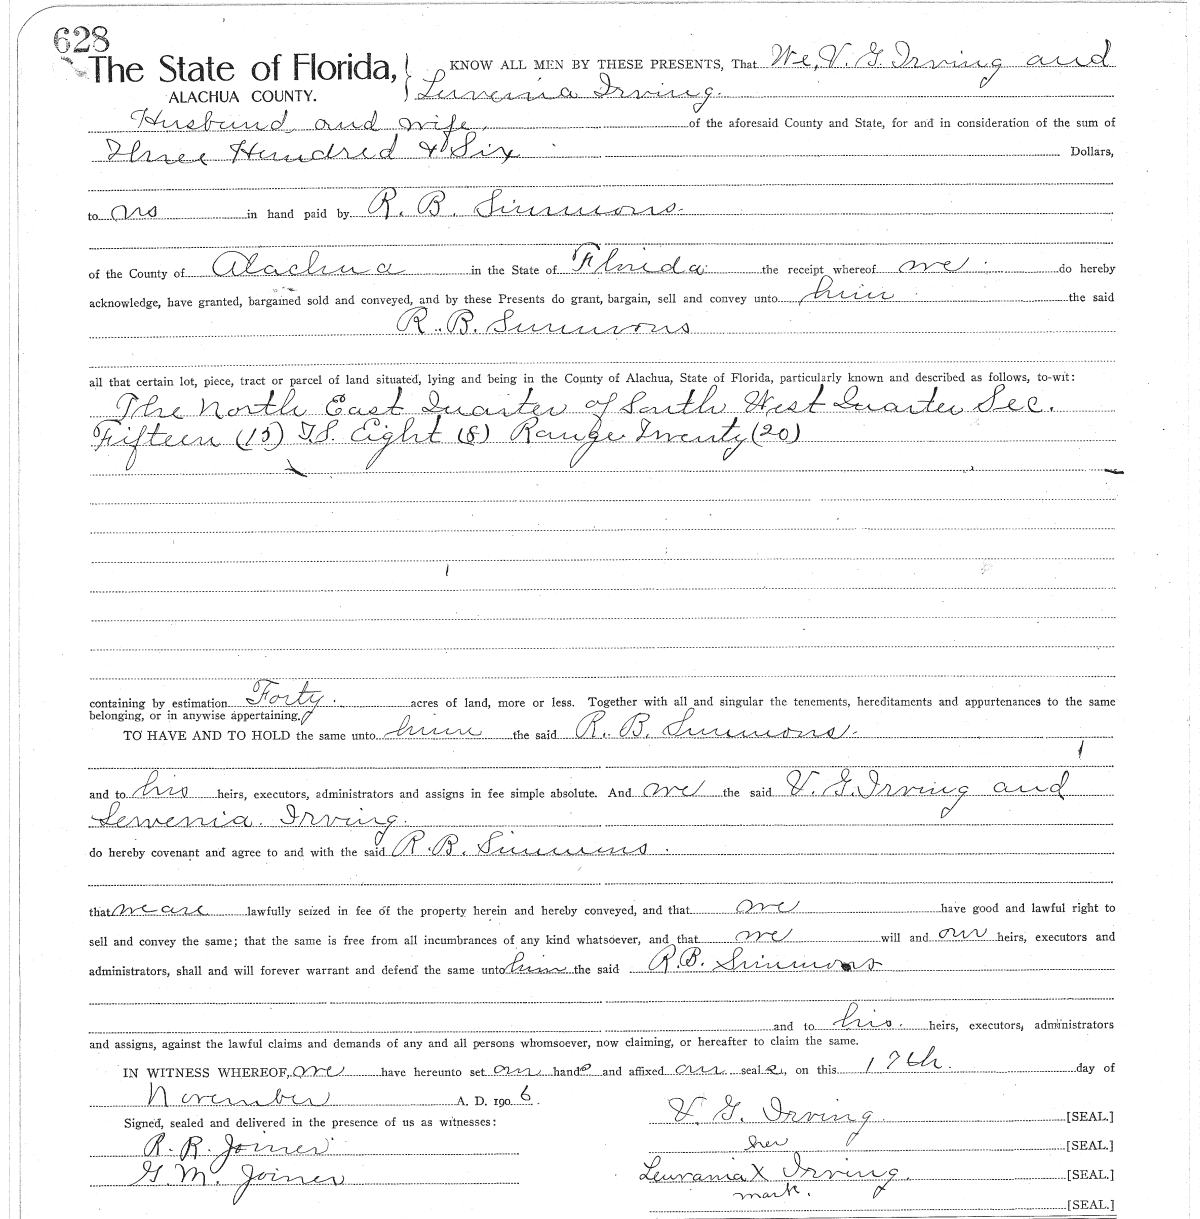 628
The State of Florida, KNOW ALL MEN BY THESE PRESENTS, That We, V. G. Irving and
ALACHUA COUNTY. Luvenia Irving.
Husband and wife, of the aforesaid County and State, for and in consideration of the sum of
Three Hundred & Six Dollars,
to us in hand paid by R. B. Simmons.
of the County of Alachua in the State of Florida the receipt whereof we do hereby
acknowledge, have granted, bargained sold and conveyed, and by these Presents do grant, bargain, sell and convey unto him the said
R. B. Simmons
all that certain lot, piece, tract or parcel of land situated, lying and being in the County of Alachua, State of Florida, particularly known and described as follows, to-wit:
The North East Quarter of South West Quarter Sec.
Fifteen (15) T.S. Eight (8) Range Twenty (20)
containing by estimation Forty. acres of land, more or less. Together with all and singular the tenements, hereditaments and appurtenances to the same
belonging, or in anywise appertaining.
TO HAVE AND TO HOLD the same unto him the said R. B. Simmons.
and to his heirs, executors, administrators and assigns in fee simple absolute. And we the said V. G. Irving and
Lewvenia. Irving.
do hereby covenant and agree to and with the said R. B. Simmons.
that we are lawfully seized in fee of the property herein and hereby conveyed, and that we have good and lawful right to
sell and convey the same; that the same is free from all incumbrances of any kind whatsoever, and that we will and our heirs, executors and
administrators, shall and will forever warrant and defend the same unto him the said R.B. Simmons
and to his. heirs, executors, administrators
and assigns, against the lawful claims and demands of any and all persons whomsoever, now claiming, or hereafter to claim the same.
IN WITNESS WHEREOF, we have hereunto set our hands and affixed our seals, on this 17th. day of
November A. D. 1906.
Signed, sealed and delivered in the presence of us as witnesses: V. G. Irving. [SEAL.]
R. R. Joiner her [SEAL.]
G. M. Joiner Leuvania X Irving. [SEAL.]
mark. [SEAL.]